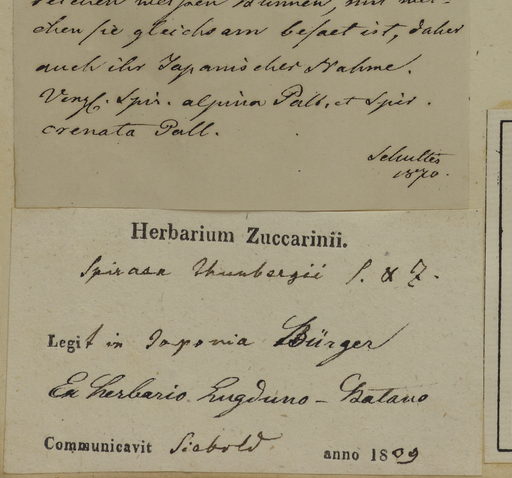 chen sie gleichsam besaet ist, daher
auch ihr Japanischer Nahme.
Vergl. Spir. alpina Pall. et Spir.
crenata Pall.
Schultes
1870.
Herbarium Zuccarinii.
Spiraea thunbergii S. & Z.
Legit in Japonia Bürger
Ex herbario Lugduno-Batavo
Communicavit Siebold anno 1839